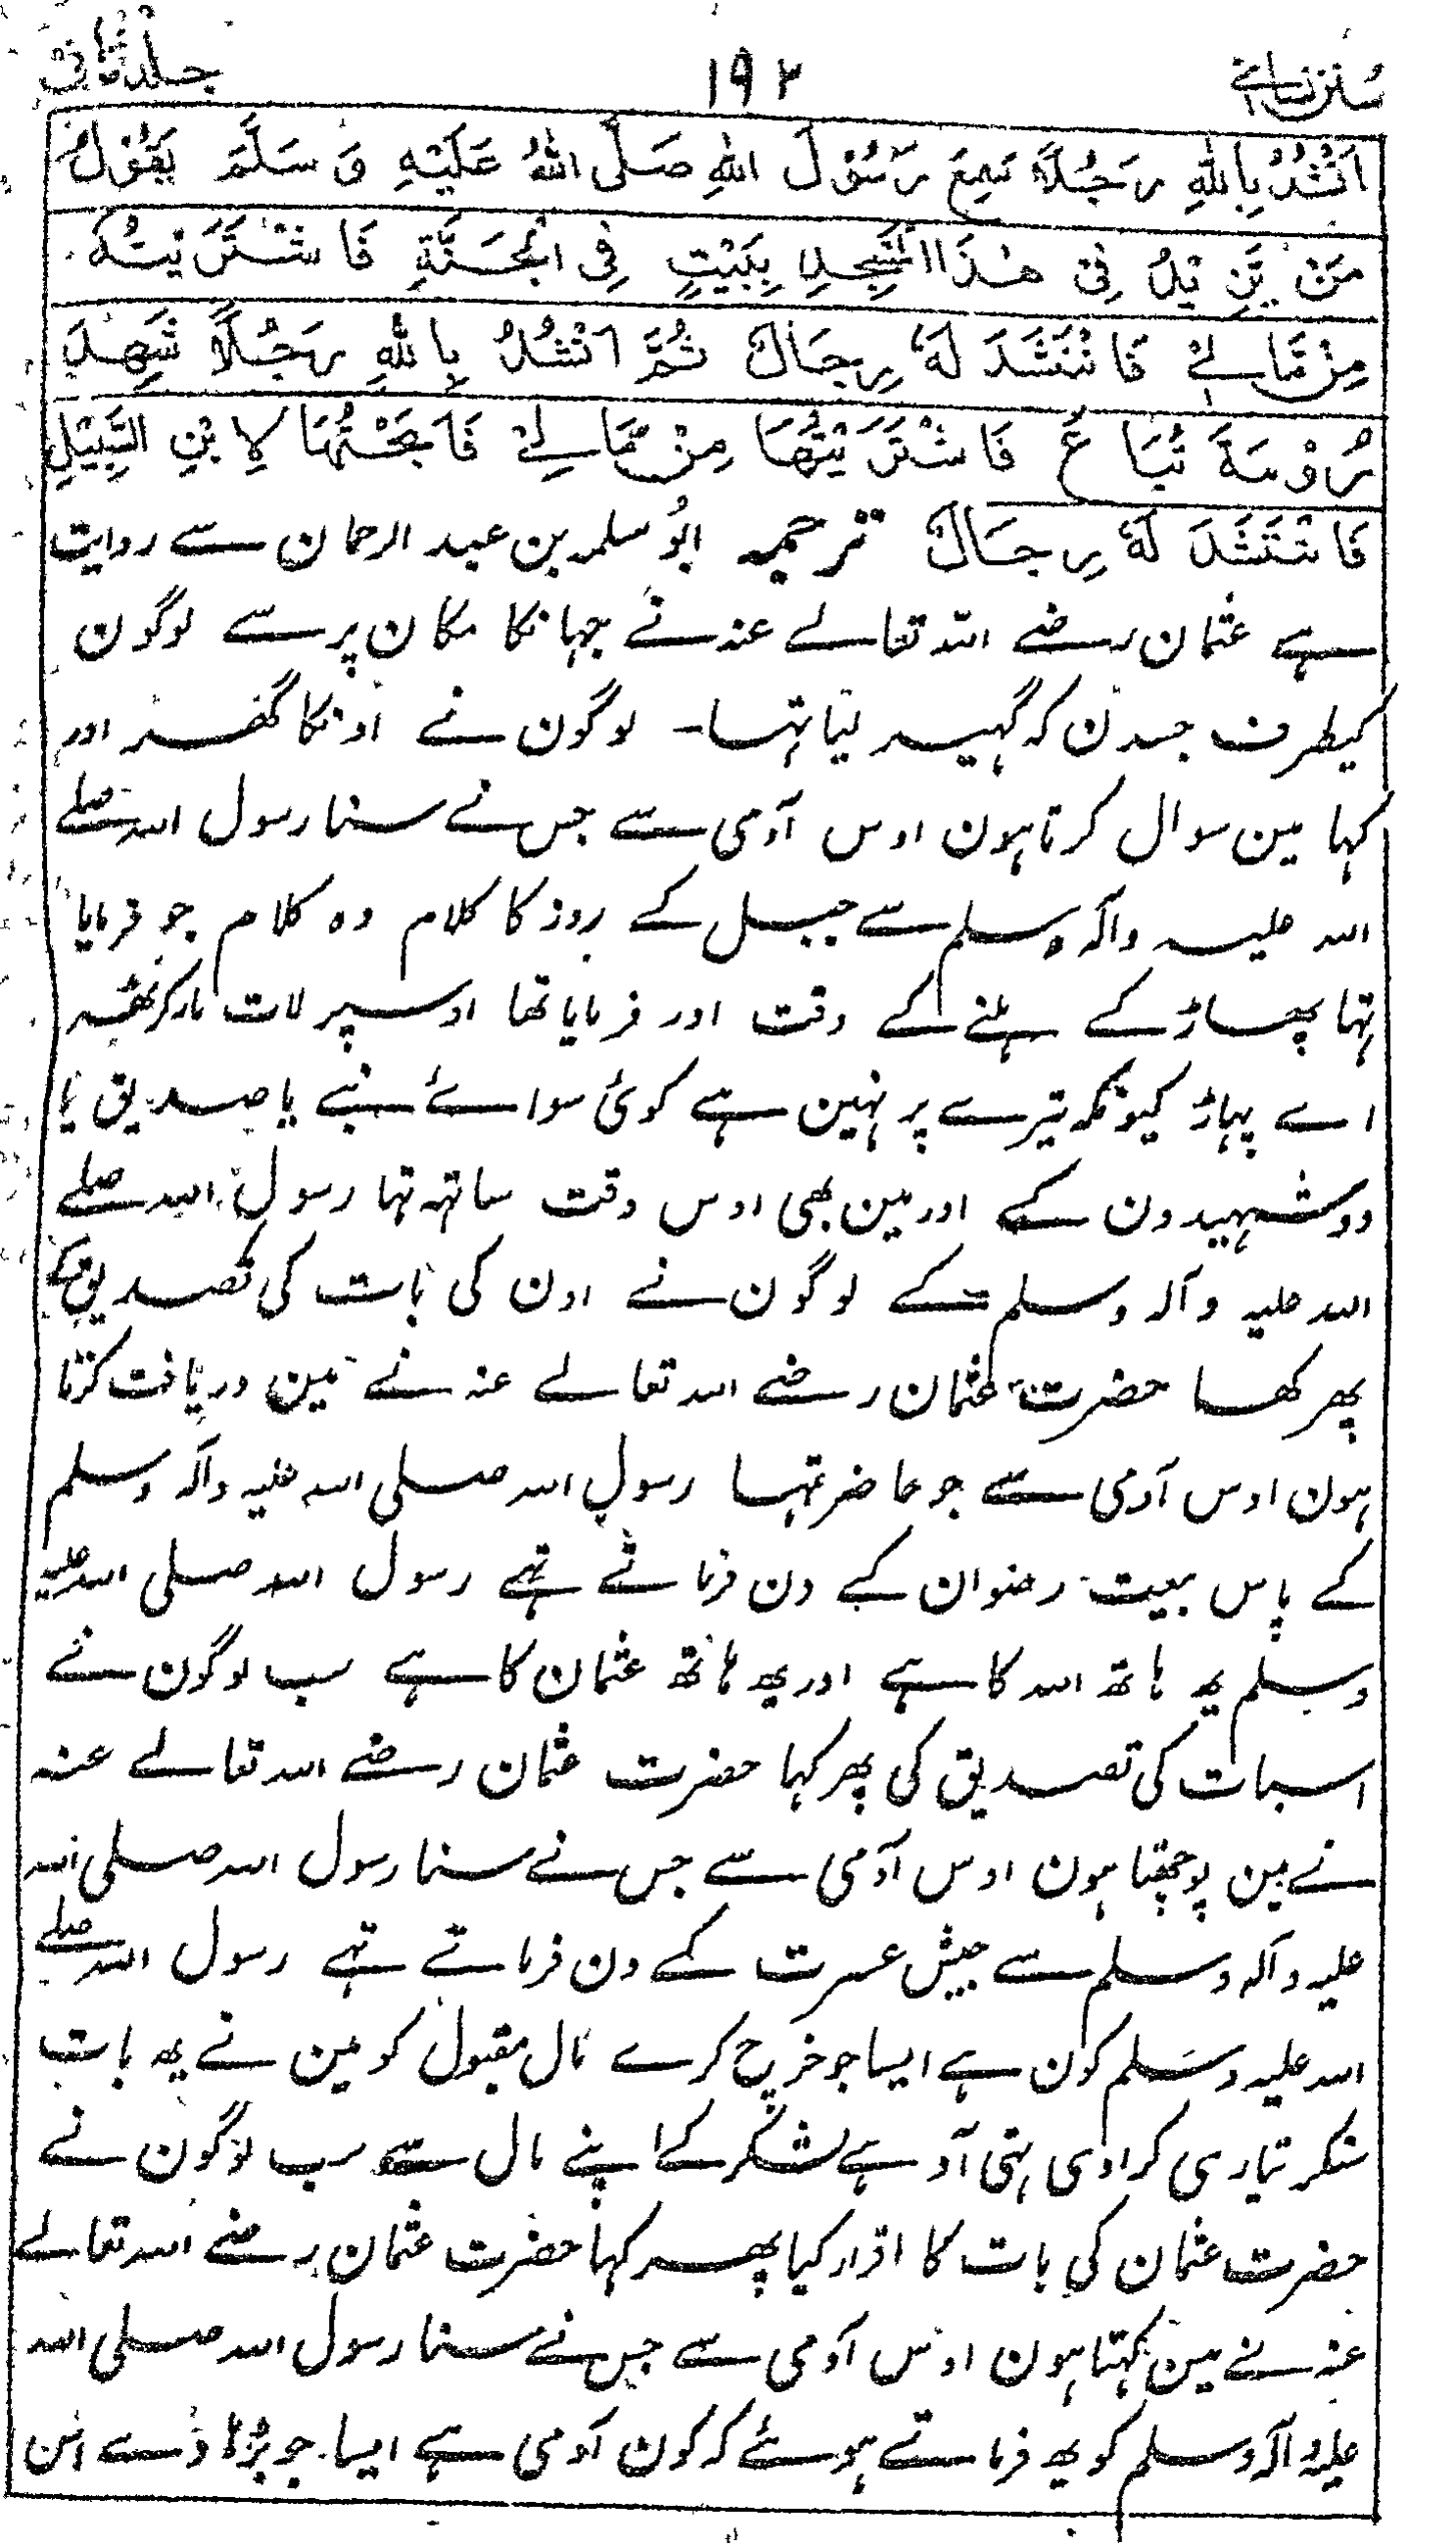 سنن نسائی ۱۹۲ جلد ثانی
اَنْشُدُ بِاللهِ رَجُلًا سَمِعَ رَسُوْلَ اللهِ صَلَّى اللهُ عَلَيْهِ وَ سَلَّمَ يَقُوْلُ
مَنْ يَّزِيْدُ فِيْ هٰذَا الْمَسْجِدِ بِبَيْتٍ فِي الْجَنَّةِ فَاشْتَرَيْتُهُ
مِنْ مَّالِيْ فَانْتَشَدَ لَهٗ رِجَالٌ ثُمَّ اَنْشُدُ بِاللهِ رَجُلًا شَهِدَ
رُوْمَةَ تُبَاعُ فَاشْتَرَيْتُهَا مِنْ مَّالِيْ فَاَبَحْتُهَا لِابْنِ السَّبِيْلِ
فَانْتَشَدَ لَهٗ رِجَالٌ ترجمہ ابو سلمہ بن عبد الرحمان سے روایت
ہے عثمان رضے اللہ تعالے عنہ نے جہانکا مکان پر سے لوگون
کیطرف جسدن کہ گہیر لیا تہا۔ لوگون نے اونکا گھر اور
کہا مین سوال کرتا ہون اوس آدمی سے جس نے سنا رسول اللہ صلے
اللہ علیہ وآلہ وسلم سے جبل کے روز کا کلام وہ کلام جو فرمایا
تہا پہاڑ کے ہلنے کے وقت اور فرمایا تھا اوسپر لات مارکر ٹھہر
اے پہاڑ کیونکہ تیرے پر نہین ہے کوئی سوائے نبے یا صدیق یا
دو شہیدون کے اور مین بھی اوس وقت ساتہہ تہا رسول اللہ صلے
اللہ علیہ وآلہ وسلم کے لوگون نے اون کی بات کی تصدیق کے
پھر کھا حضرت عثمان رضے اللہ تعالے عنہ نے مین دریافت کرتا
ہون اوس آدمی سے جو حاضر تہا رسول اللہ صلی اللہ علیہ وآلہ وسلم
کے پاس بیعت رضوان کے دن فرماتے تہے رسول اللہ صلی اللہ علیہ
وسلم یہ ہاتھ اللہ کا ہے اور یہ ہاتھ عثمان کا ہے سب لوگون نے
اسبات کی تصدیق کی پھر کہا حضرت عثمان رضے اللہ تعالے عنہ
نے مین پوچھتا ہون اوس آدمی سے جس نے سنا رسول اللہ صلی اللہ
علیہ وآلہ وسلم سے جیش عسرت کے دن فرماتے تہے رسول اللہ صلے
اللہ علیہ وسلم کون ہے ایسا جو خرچ کرے مال مقبول کو مین نے یہ بات
سنکر تیاری کرادی تہی آدہے لشکر کے اپنے مال سے سب لوگون نے
حضرت عثمان کی بات کا اقرار کیا پھر کہا حضرت عثمان رضے اللہ تعالے
عنہ نے مین کہتا ہون اوس آدمی سے جس نے سنا رسول اللہ صلی اللہ
علیہ وآلہ وسلم کو یہ فرماتے ہوئے کہ کون آدمی ہے ایسا جو بڑہا دے اس